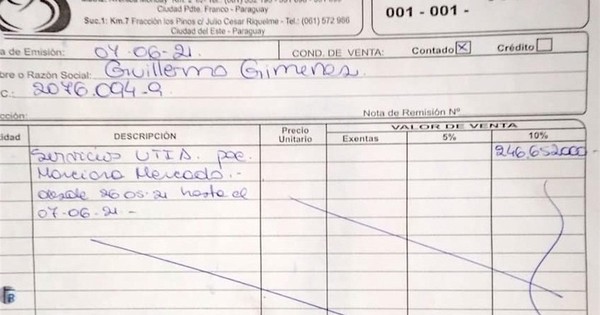 Ciudad Pdte. Franco - Paraguay
Suc.1: Km.7 Fracción los Pinos c/ Julio Cesar Riquelme - Tel.: (061) 572 986
Ciudad del Este - Paraguay
001 - 001 -
a de Emisión: 07-06-21. COND. DE VENTA: Contado X Crédito
bre o Razón Social: Guillermo Gimenez.
C.: 2076.094-9
cción: Nota de Remisión Nº
idad DESCRIPCIÓN Precio Unitario VALOR DE VENTA
Exentas 5% 10%
Servicios UTIA. pac. 246.652.000
Marciana Mercado.-
desde 26-05-21 hasta el
07-06-21 -